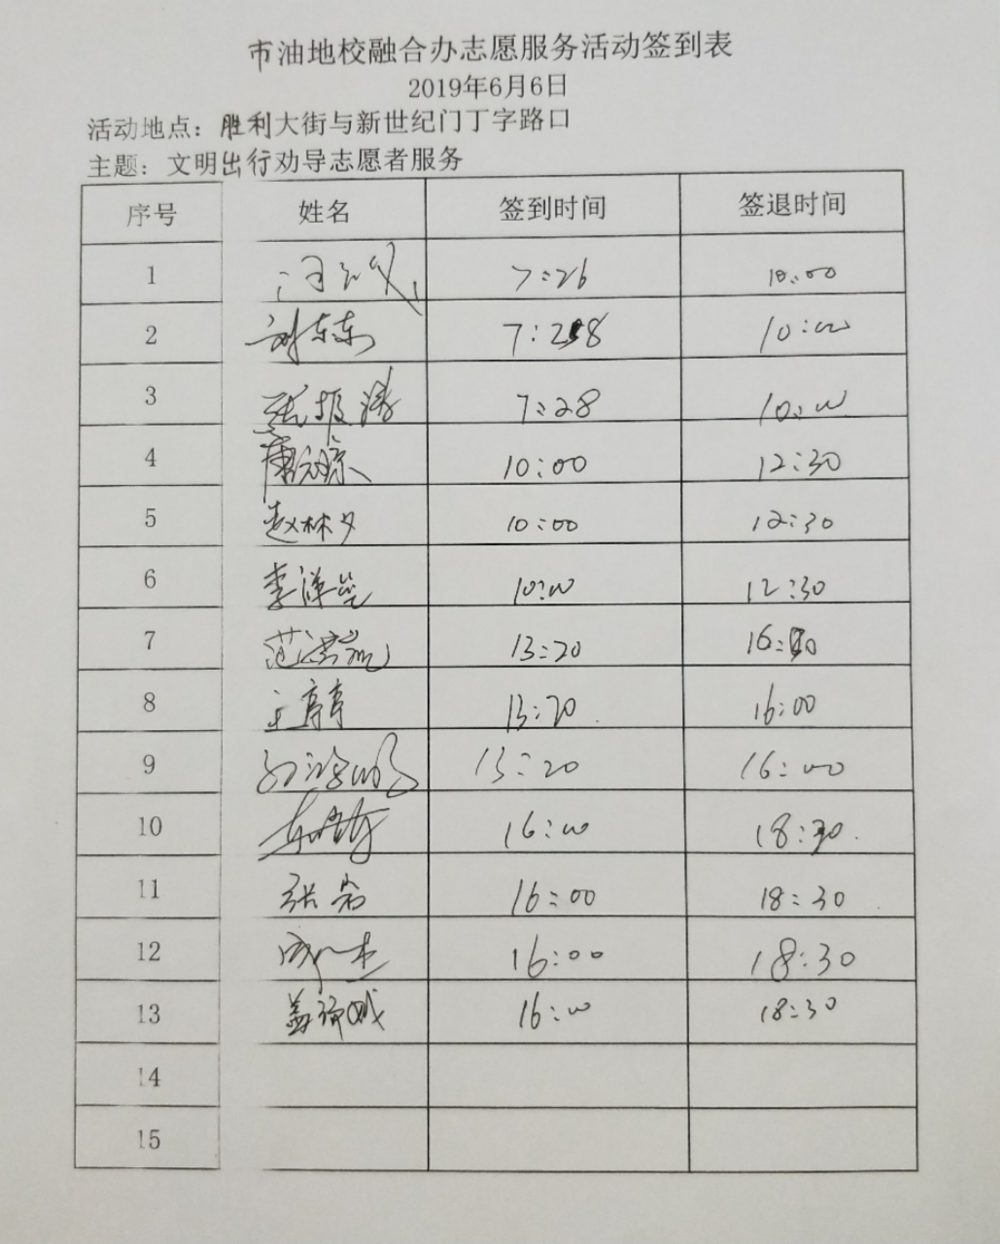 市油地校融合办志愿服务活动签到表
2019年6月6日
活动地点：胜利大街与新世纪门丁字路口
主题：文明出行劝导志愿者服务
序号 姓名 签到时间 签退时间
1 7:26 10:00
2 刘东东 7:28 10:00
3 张振涛 7:28 10:00
4 10:00 12:30
5 赵林夕 10:00 12:30
6 李泽莹 10:00 12:30
7 13:20 16:00
8 王亭亭 13:20 16:00
9 13:20 16:00
10 16:00 18:30
11 张岩 16:00 18:30
12 16:00 18:30
13 16:00 18:30
14
15